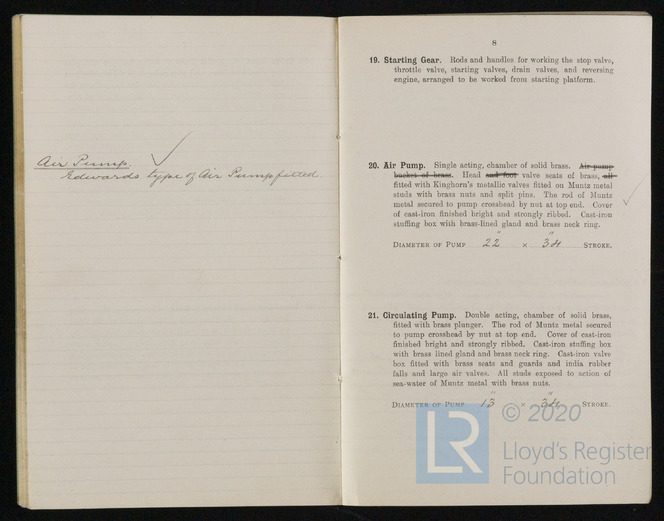 Air Pump.
Edwards type of Air Pump fitted.
8
19. Starting Gear. Rods and handles for working the stop valve,
throttle valve, starting valves, drain valves, and reversing
engine, arranged to be worked from starting platform.
20. Air Pump. Single acting, chamber of solid brass. Air pump
bucket of brass. Head and foot valve seats of brass, all
fitted with Kinghorn's metallic valves fitted on Muntz metal
studs with brass nuts and split pins. The rod of Muntz
metal secured to pump crosshead by nut at top end. Cover
of cast-iron finished bright and strongly ribbed. Cast-iron
stuffing box with brass-lined gland and brass neck ring.
Diameter of Pump 22" × 34" Stroke.
21. Circulating Pump. Double acting, chamber of solid brass,
fitted with brass plunger. The rod of Muntz metal secured
to pump crosshead by nut at top end. Cover of cast-iron
finished bright and strongly ribbed. Cast-iron stuffing box
with brass lined gland and brass neck ring. Cast-iron valve
box fitted with brass seats and guards and india rubber
falls and large air valves. All studs exposed to action of
sea-water of Muntz metal with brass nuts.
Diameter of Pump 13" × 34" Stroke.
LR
© 2020
Lloyd's Register
Foundation